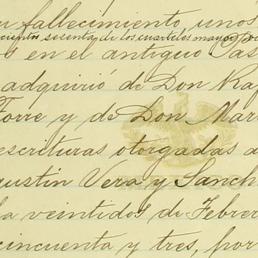 fallecimiento, unos
cientos sesenta de los cuarteles mayor
s en el antiguo Pas
adquirió de Don Raf
Torre y de Don Mar
escrituras otorgadas a
gustin Vera y Sanch
la veintidos de Febrer
cincuenta y tres, por